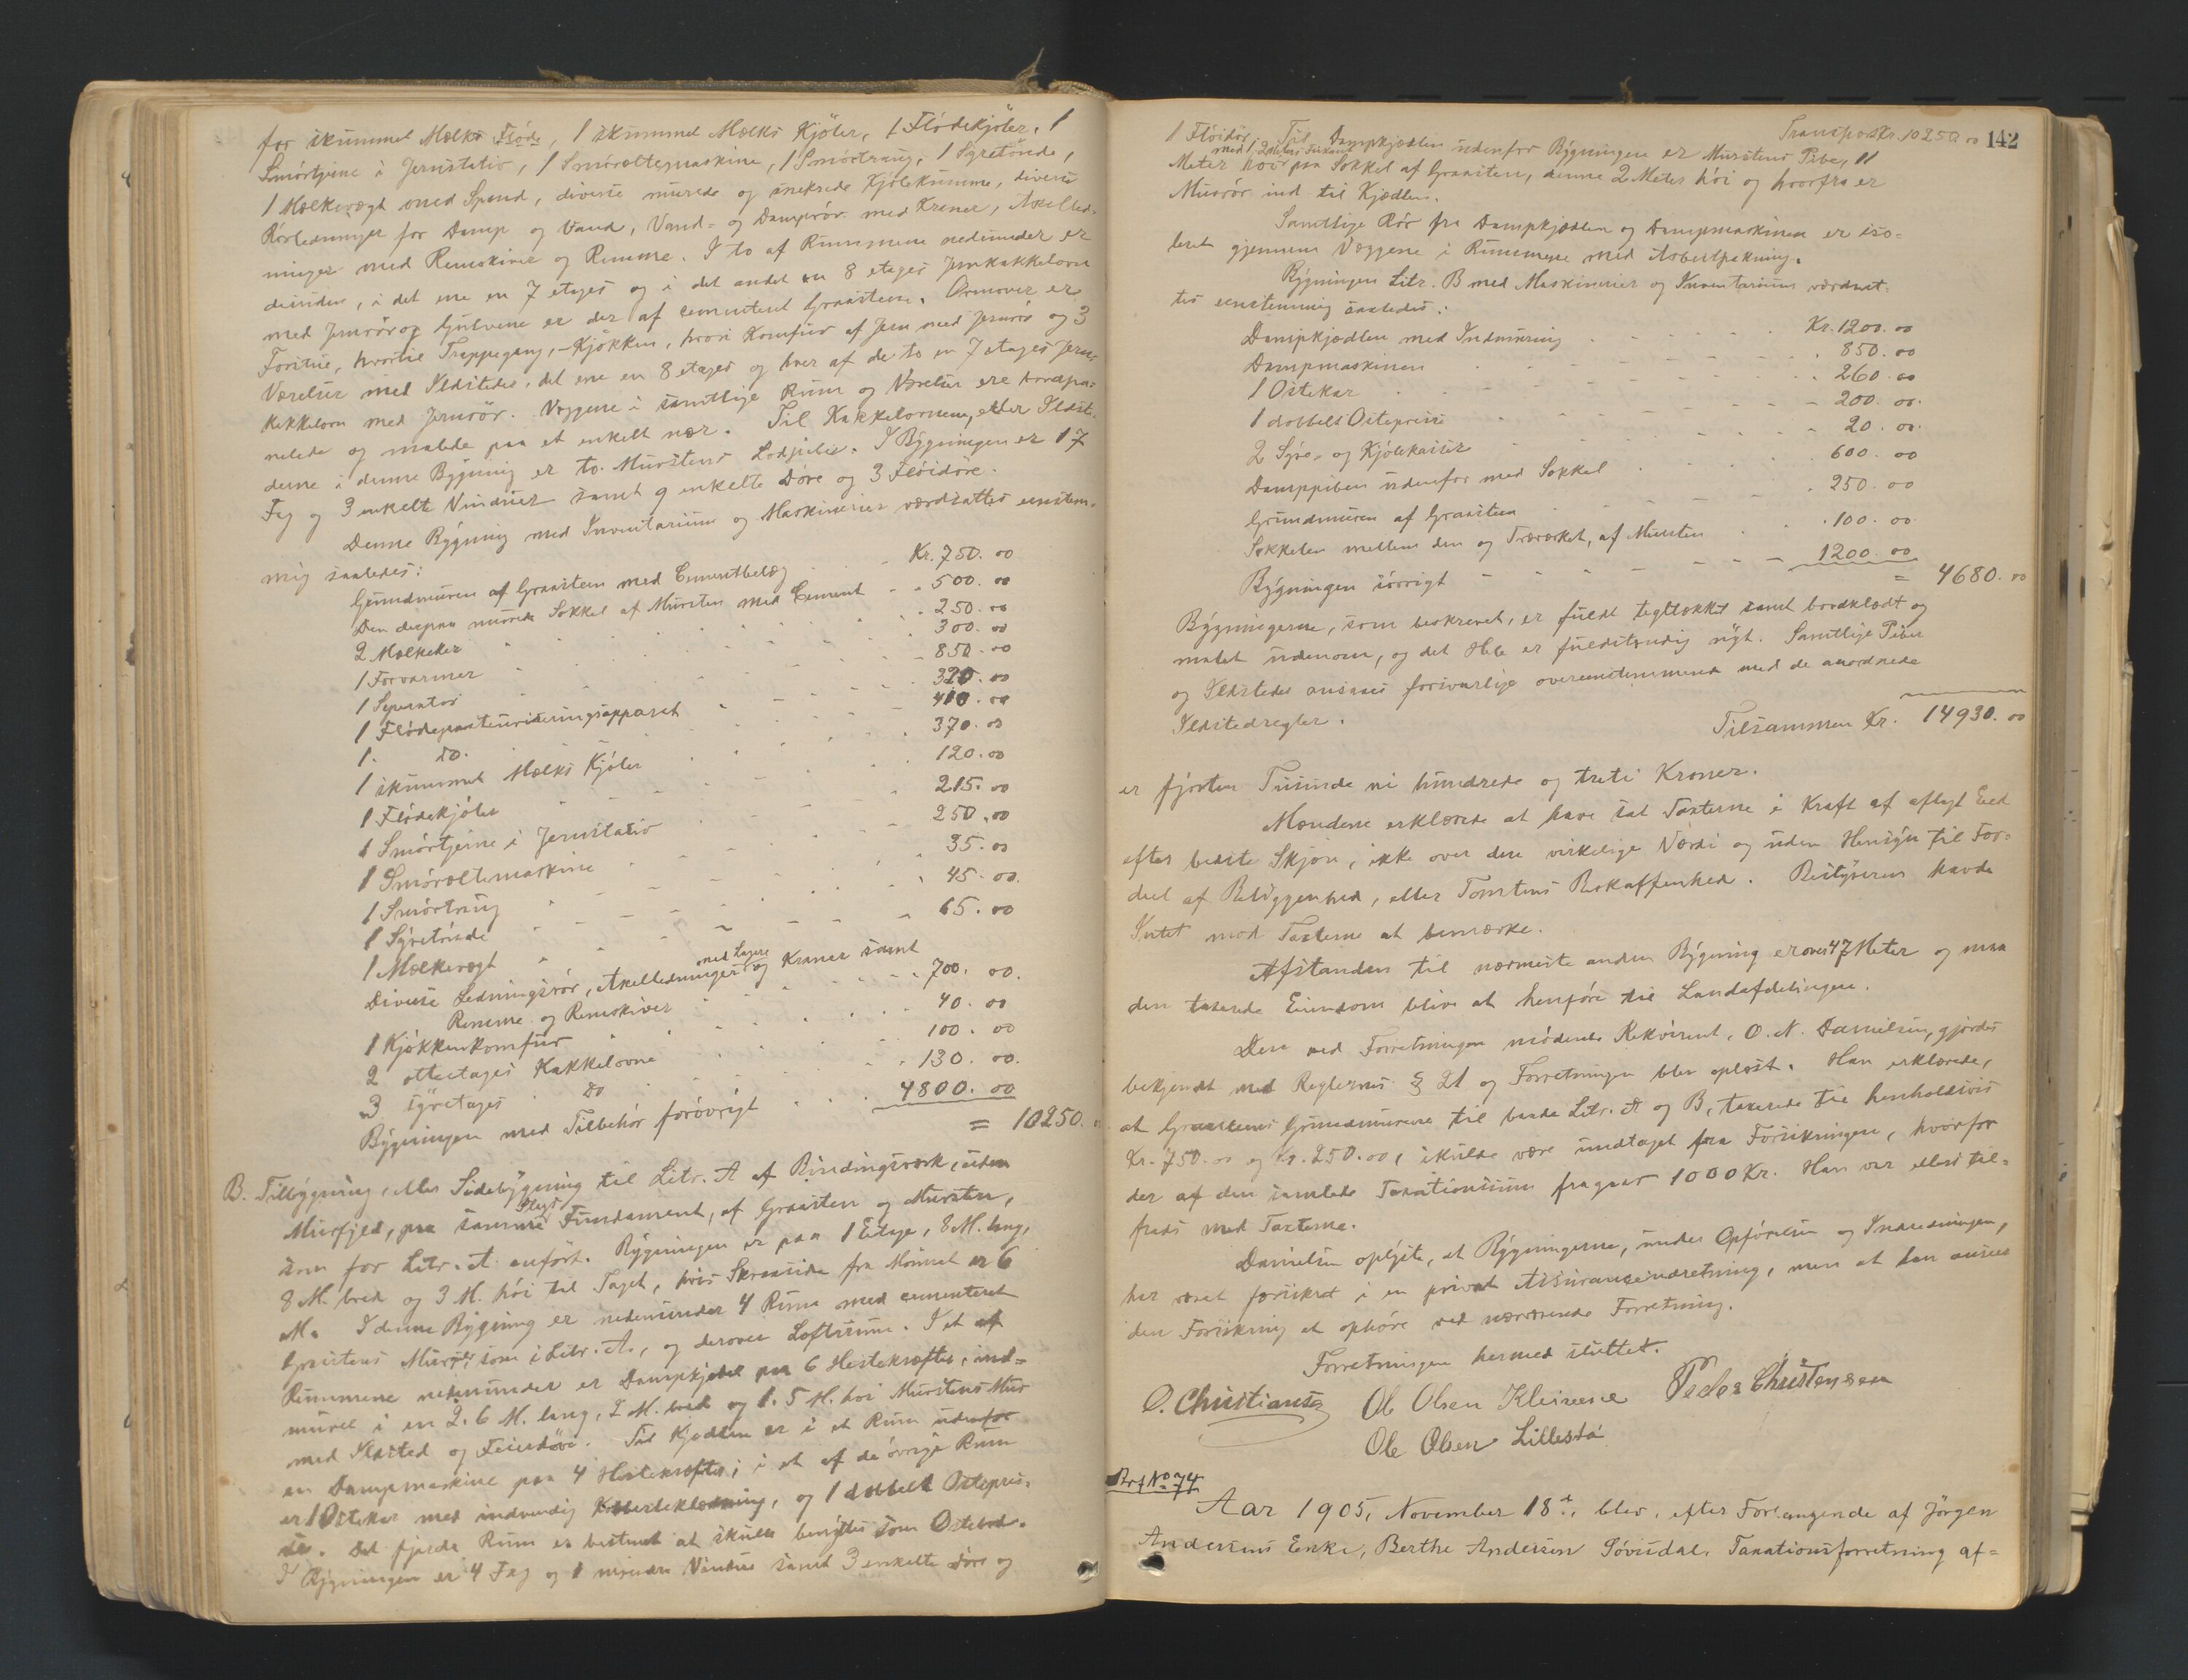 for skummet Mælks Fløde, 1 skummet Mælks Kjøler, 1 Flødekjøler, 1
Smørtjerne i Jernstativ, 1 Smøræltemaskine, 1 Smørtraug, 1 Syretønde,
1 Mælkevægt med Spand, diverse murede og snekrede Kjølekumme, diverse
Rørledninger for Damp og Vand, Vand- og Damprør med Kraner, Axelled-
ninger med Remskiver og Remme. I to af Rummene nedunder er
desuden, i det ene en 7 etages og i det andet en 8 etages Jernkakkelovn
med Jernrør og Gulvene er der af cementeret Graasten. Ovenover er
Forstue, hvortil Trappegang, Kjøkken, hvori Komfur af Jern med Jernrør og 3
Værelser med Ildsteder, det ene en 8 etages og hver af de to en 7 etages Jern-
kakkelovn med Jernrør. Væggene i samtlige Rum og Værelser ere brædpa-
nelede og malede paa et enkelt nær. Til Kakkelovnene, eller Ildste-
derne i denne Bygning er to Murstens Lodpiber. I Bygningen er 17
Fag og 3 enkelte Vinduer samt 9 enkelte Døre og 3 Fløidøre.
Denne Bygning med Inventarium og Maskinerier værdsattes enstem-
mig saaledes:
Grundmuren af Graasten med Cementbelæg Kr. 750.00
Den derpaa murede Sokkel af Mursten med Cement 500.00
2 Mælkekar 250.00
1 Forvarmer 300.00
1 Separator 850.00
1 Flødepasteuriseringsapparat 320.00
1 do. 410.00
1 skummet Mælks Kjøler 370.00
1 Flødekjøler 120.00
1 Smørtjerne i Jernstativ 215.00
1 Smøræltemaskine 250.00
1 Smørtraug 35.00
1 Syretønde 45.00
1 Mælkevægt 65.00
Diverse Ledningsrør, Axelledninger med Lagere og Kraner samt
Remme og Remskiver 700.00
1 Kjøkkenkomfur 40.00
2 otteetages Kakkelovne 100.00
3 syvetages Do 130.00
Bygningen med Tilbehør forøvrigt 4800.00
= 10250.
B. Tilbygning, eller Sidebygning til Litr. A af Bindingsværk, uden
Murfjeld, paa samme Slags Fundament, af Graasten og Mursten,
som for Litr. A. anført. Bygningen er paa 1 Etage, 8 M. lang,
8 M. bred og 3 M. høi til Taget, hvis Skraaside fra Mønnet er 6
M. I denne Bygning er nedenunder 4 Rum med cementeret
Graastens som i Litr. A., og derover Loftsrum. I et af
Rummene nedenunder er Dampkjedel paa 6 Hestekræfter, ind-
muret i en 2.6 M. lang, 2 M. bred og 1.5 M. høi Murstens Mur
med Ildsted og Feiedøre. Til Kjedlen er i et Rum udenfor
en Dampmaskine paa 4 Hestekræfter; i et af de øvrige Rum
er 1 Ostekar med indvendig Kobberbeklædning, og 1 dobbelt Ostepres-
se. Det fjerde Rum er bestemt at skulle benyttes som Ostebod.
I Bygningen er 4 Fag og 1 mindre Vindue samt 3 enkelte Døre og
Transport Kr. 10250.00 142
1 Fløidør. Til Dampkjedlen udenfor Bygningen er Murstens Pibe, 11
Meter høi med paa Sokkel af Graasten, denne 2 Meter høi og hvorfra er
Murrør ind til Kjedlen.
Samtlige Rør fra Dampkjedlen og Dampmaskinen er iso-
leret gjennem Væggene i Rummene med Asbestpakning.
Bygningen Litr. B med Maskinerier og Inventarium værdsat-
tes enstemmig saaledes:
Dampkjedlen med Indmuring Kr. 1200.00
Dampmaskinen 850.00
1 Ostekar 260.00
1 dobbelt Ostepresse 200.00
2 Syre- og Kjølekasser 20.00
Damppiben udenfor med Sokkel 600.00
Grundmuren af Graasten 250.00
Sokkelen mellem den og Træværket, af Mursten 100.00
Bygningen iøvrigt 1200.00
= 4680.00
Bygningerne, som beskrevet, er fuldt tegltækket samt bordklædt og
malet udenom, og det Hele er fuldstændig nyt. Samtlige Piber
og Ildsteder ansaaes forsvarlige overensstemmende med de anordnede
Ildstedregler.
Tilsammen Kr. 14930.00
er fjorten Tusinde ni hundrede og treti Kroner.
Mændene erklærede at have sat Taxterne i Kraft af aflagt Eed
efter bedste Skjøn, ikke over den virkelige Værdi og uden Hensyn til For-
deel af Beliggenhed, eller Tomtens Beskaffenhed. Bestyreren havde
Intet mod Taxterne at bemærke.
Afstanden til nærmeste anden Bygning er over 47 Meter og maa
den taxerede Eiendom blive at henføre til Landafdelingen.
Den ved Forretningen mødende Rekvirent, O. N. Danielsen, gjordes
bekjendt med Reglernes § 21 og Forretningen blev oplæst. Han erklærede,
at Graastens Grundmurene til baade Litr. A og B, taxerede til henholdsvis
Kr. 750.00 og Kr. 250.00, skulde være undtaget fra Forsikringen, hvorfor
der af den samlede Taxationssum fragaar 1000 Kr. Han var ellers til-
freds med Taxterne.
Danielsen oplyste, at Bygningerne, under Opførelsen og Indredningen,
har været forsikret i en privat Assuranceindretning, men at han anser
den Forsikring at ophøre ved nærværende Forretning.
Forretningen hermed sluttet.
O. Christiansen Ole Olsen Kleivene Peder Christensen
Ole Olsen Lillestø
Brf No 74
Aar 1905, November 18de, blev, efter Forlangende af Jørgen
Andersens Enke, Berthe Andersen Søvisdal, Taxationsforretning af-